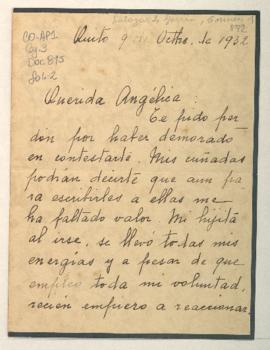 Salazar de
892
CO-AP1
Cj-3
Doc 895
fol. 2
Quito 9 de Octbre. de 1932
Querida Angélica:
Te pido per
don por haber demorado
en contestarte. Mis cuñadas
podrían decirte que aun pa
ra escribirles a ellas me
ha faltado valor. Mi hijita
al irse, se llevó todas mis
energías y a pesar de que
empleo toda mi voluntad,
recien empiezo a reaccionar,